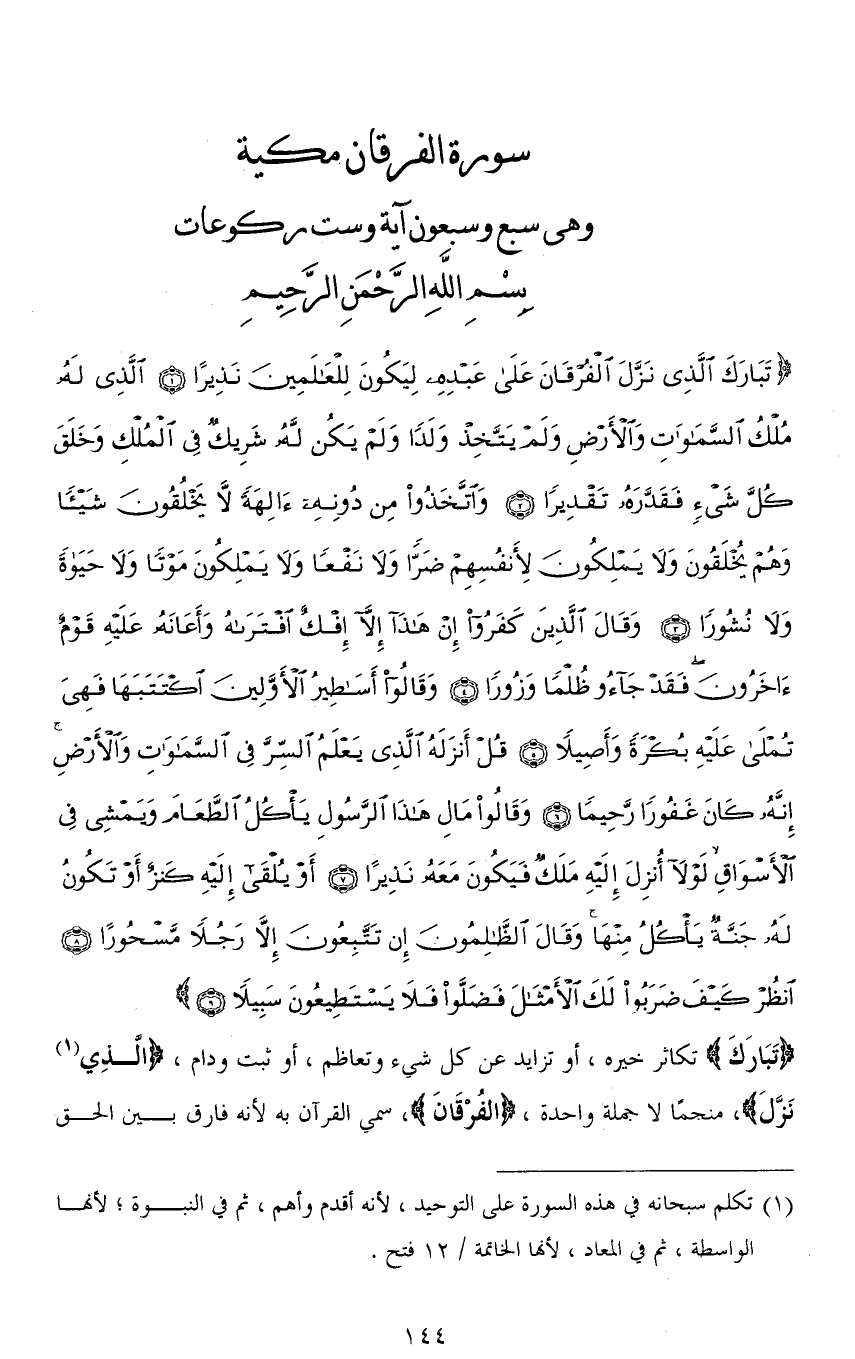 سورة الفرقان مكية
وهى سبع وسبعون آية وست ركوعات
بِسْمِ اللَّهِ الرَّحْمَنِ الرَّحِيمِ
﴿ تَبَارَكَ ٱلَّذِى نَزَّلَ ٱلْفُرْقَانَ عَلَىٰ عَبْدِهِۦ لِيَكُونَ لِلْعَـٰلَمِينَ نَذِيرًا ١ ٱلَّذِى لَهُۥ
مُلْكُ ٱلسَّمَـٰوَٰتِ وَٱلْأَرْضِ وَلَمْ يَتَّخِذْ وَلَدًا وَلَمْ يَكُن لَّهُۥ شَرِيكٌ فِى ٱلْمُلْكِ وَخَلَقَ
كُلَّ شَىْءٍ فَقَدَّرَهُۥ تَقْدِيرًا ٢ وَٱتَّخَذُوا۟ مِن دُونِهِۦٓ ءَالِهَةً لَّا يَخْلُقُونَ شَيْـًٔا
وَهُمْ يُخْلَقُونَ وَلَا يَمْلِكُونَ لِأَنفُسِهِمْ ضَرًّا وَلَا نَفْعًا وَلَا يَمْلِكُونَ مَوْتًا وَلَا حَيَوٰةً
وَلَا نُشُورًا ٣ وَقَالَ ٱلَّذِينَ كَفَرُوٓا۟ إِنْ هَـٰذَآ إِلَّآ إِفْكٌ ٱفْتَرَىٰهُ وَأَعَانَهُۥ عَلَيْهِ قَوْمٌ
ءَاخَرُونَ ۖ فَقَدْ جَآءُو ظُلْمًا وَزُورًا ٤ وَقَالُوٓا۟ أَسَـٰطِيرُ ٱلْأَوَّلِينَ ٱكْتَتَبَهَا فَهِىَ
تُمْلَىٰ عَلَيْهِ بُكْرَةً وَأَصِيلًا ٥ قُلْ أَنزَلَهُ ٱلَّذِى يَعْلَمُ ٱلسِّرَّ فِى ٱلسَّمَـٰوَٰتِ وَٱلْأَرْضِ ۚ
إِنَّهُۥ كَانَ غَفُورًا رَّحِيمًا ٦ وَقَالُوا۟ مَالِ هَـٰذَا ٱلرَّسُولِ يَأْكُلُ ٱلطَّعَامَ وَيَمْشِى فِى
ٱلْأَسْوَاقِ ۙ لَوْلَآ أُنزِلَ إِلَيْهِ مَلَكٌ فَيَكُونَ مَعَهُۥ نَذِيرًا ٧ أَوْ يُلْقَىٰٓ إِلَيْهِ كَنزٌ أَوْ تَكُونُ
لَهُۥ جَنَّةٌ يَأْكُلُ مِنْهَا ۚ وَقَالَ ٱلظَّـٰلِمُونَ إِن تَتَّبِعُونَ إِلَّا رَجُلًا مَّسْحُورًا ٨
ٱنظُرْ كَيْفَ ضَرَبُوا۟ لَكَ ٱلْأَمْثَـٰلَ فَضَلُّوا۟ فَلَا يَسْتَطِيعُونَ سَبِيلًا ٩ ﴾
﴿تَبَارَكَ﴾ تكاثر خيره ، أو تزايد عن كل شيء وتعاظم ، أو ثبت ودام ، ﴿الَّـــذِي(١)
نَزَّلَ﴾، منجمًا لا جملة واحدة ، ﴿الفُرْقَانَ﴾، سمي القرآن به لأنه فارق بـــين الحـــق
(١) تكلم سبحانه في هذه السورة على التوحيد ، لأنه أقدم وأهم ، ثم في النبـــوة ؛ لأنهـــا
الواسطة ، ثم في المعاد ، لأنها الخاتمة / ١٢ فتح .
١٤٤